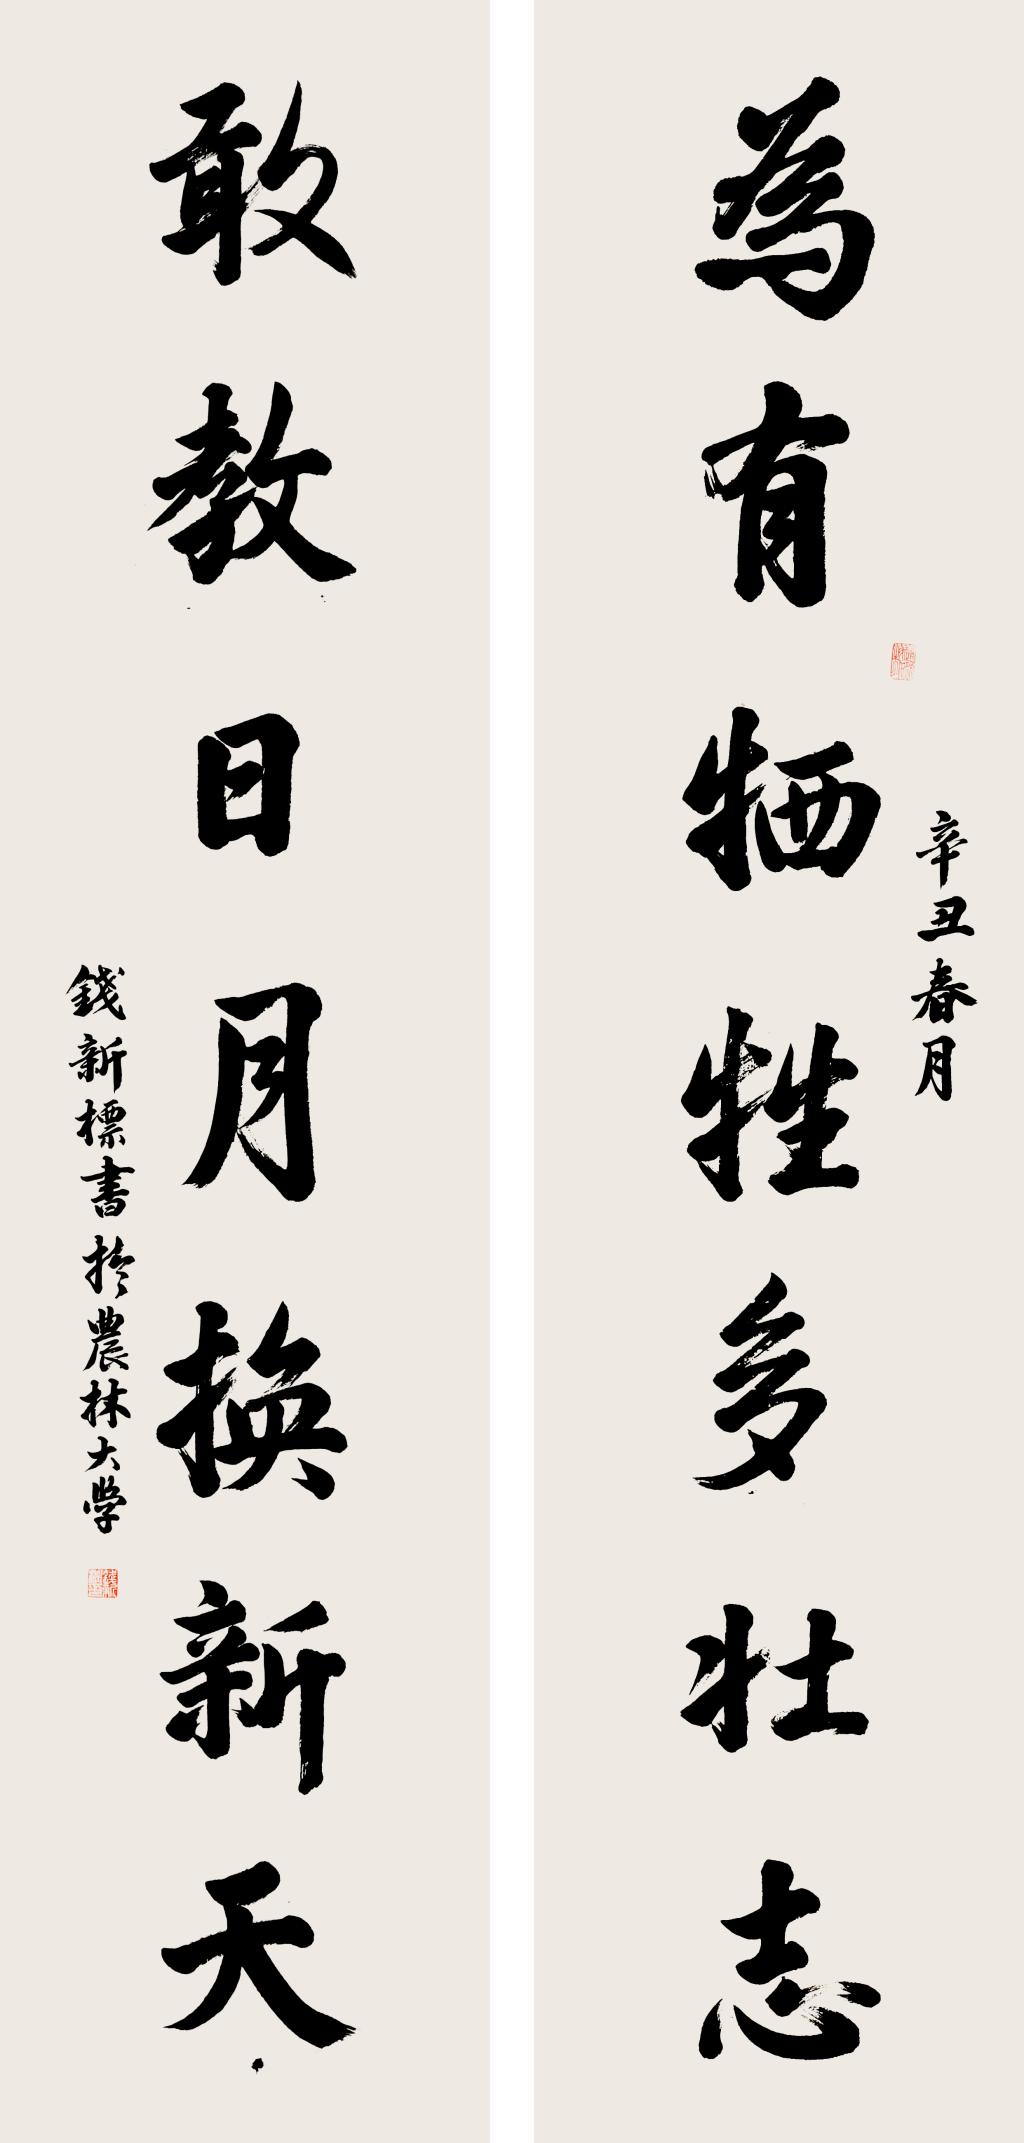 為有牺牲多壮志
辛丑春月
敢教日月换新天
錢新標書於農林大学